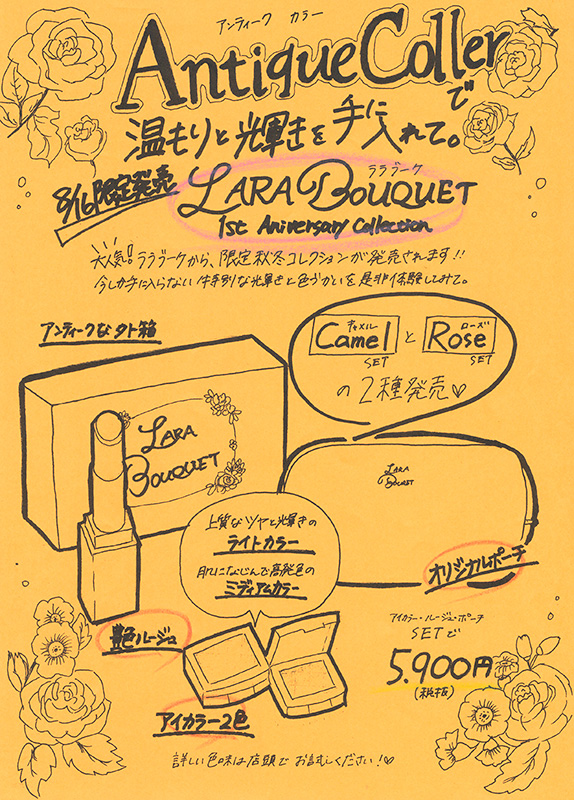 アンティーク カラー
AntiqueColler
で
温もりと光輝きを手に入れて。
8/16限定発売
ララブーケ
LARA BOUQUET
1st Aniversary Collection
大人気!ララブーケから、限定秋冬コレクションが発売されます!!
今しか手に入らない特別な光輝きと色づかいを是非体験してみて。
アンティークな外箱
キャメル
ローズ
Camel と Rose
SET
SET
の2種発売♡
LARA
BOUQUET
LARA
BOUQUET
上質なツヤと光輝きの
ライトカラー
肌になじんで高発色の
ミディアムカラー
オリジナルポーチ
艶色ルージュ
アイカラー2色
アイカラー・ルージュ・ポーチ
SETで
5.900円
(税抜)
詳しい色味は店頭でお試しください!♡